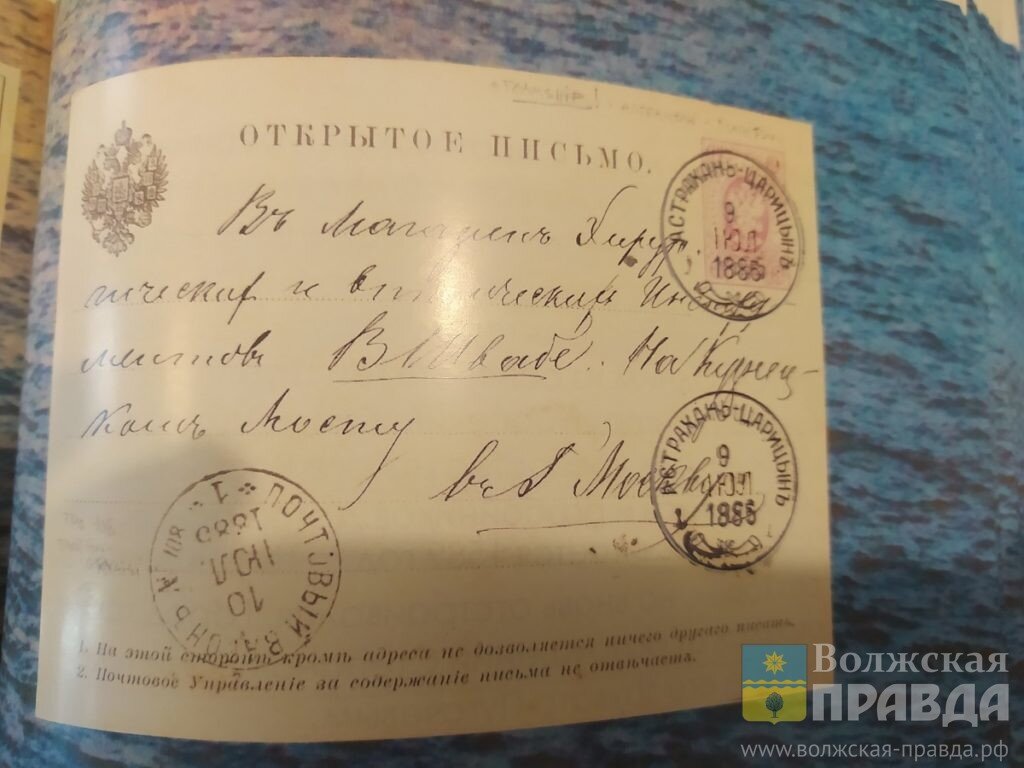 ОТКРЫТОЕ ПИСЬМО.
Въ Магазинъ Хирур
гическихъ и оптическихъ Инстру
ментовъ В Швабе. На Кузнец-
комъ Мосту
въ г Москву
АСТРАХАНЬ-ЦАРИЦЫНЪ
9
ІЮЛ
1885
АСТРАХАНЬ-ЦАРИЦЫНЪ
9
ІЮЛ
1885
ПОЧТОВЫЙ ВАГОНЪ
10
ІЮЛ
1885
1
1. На этой сторонѣ, кромѣ адреса не дозволяется ничего другаго писать.
2. Почтовое Управленіе за содержаніе письма не отвѣчаетъ.
Волжская
ПРАВДА
www.волжская-правда.рф